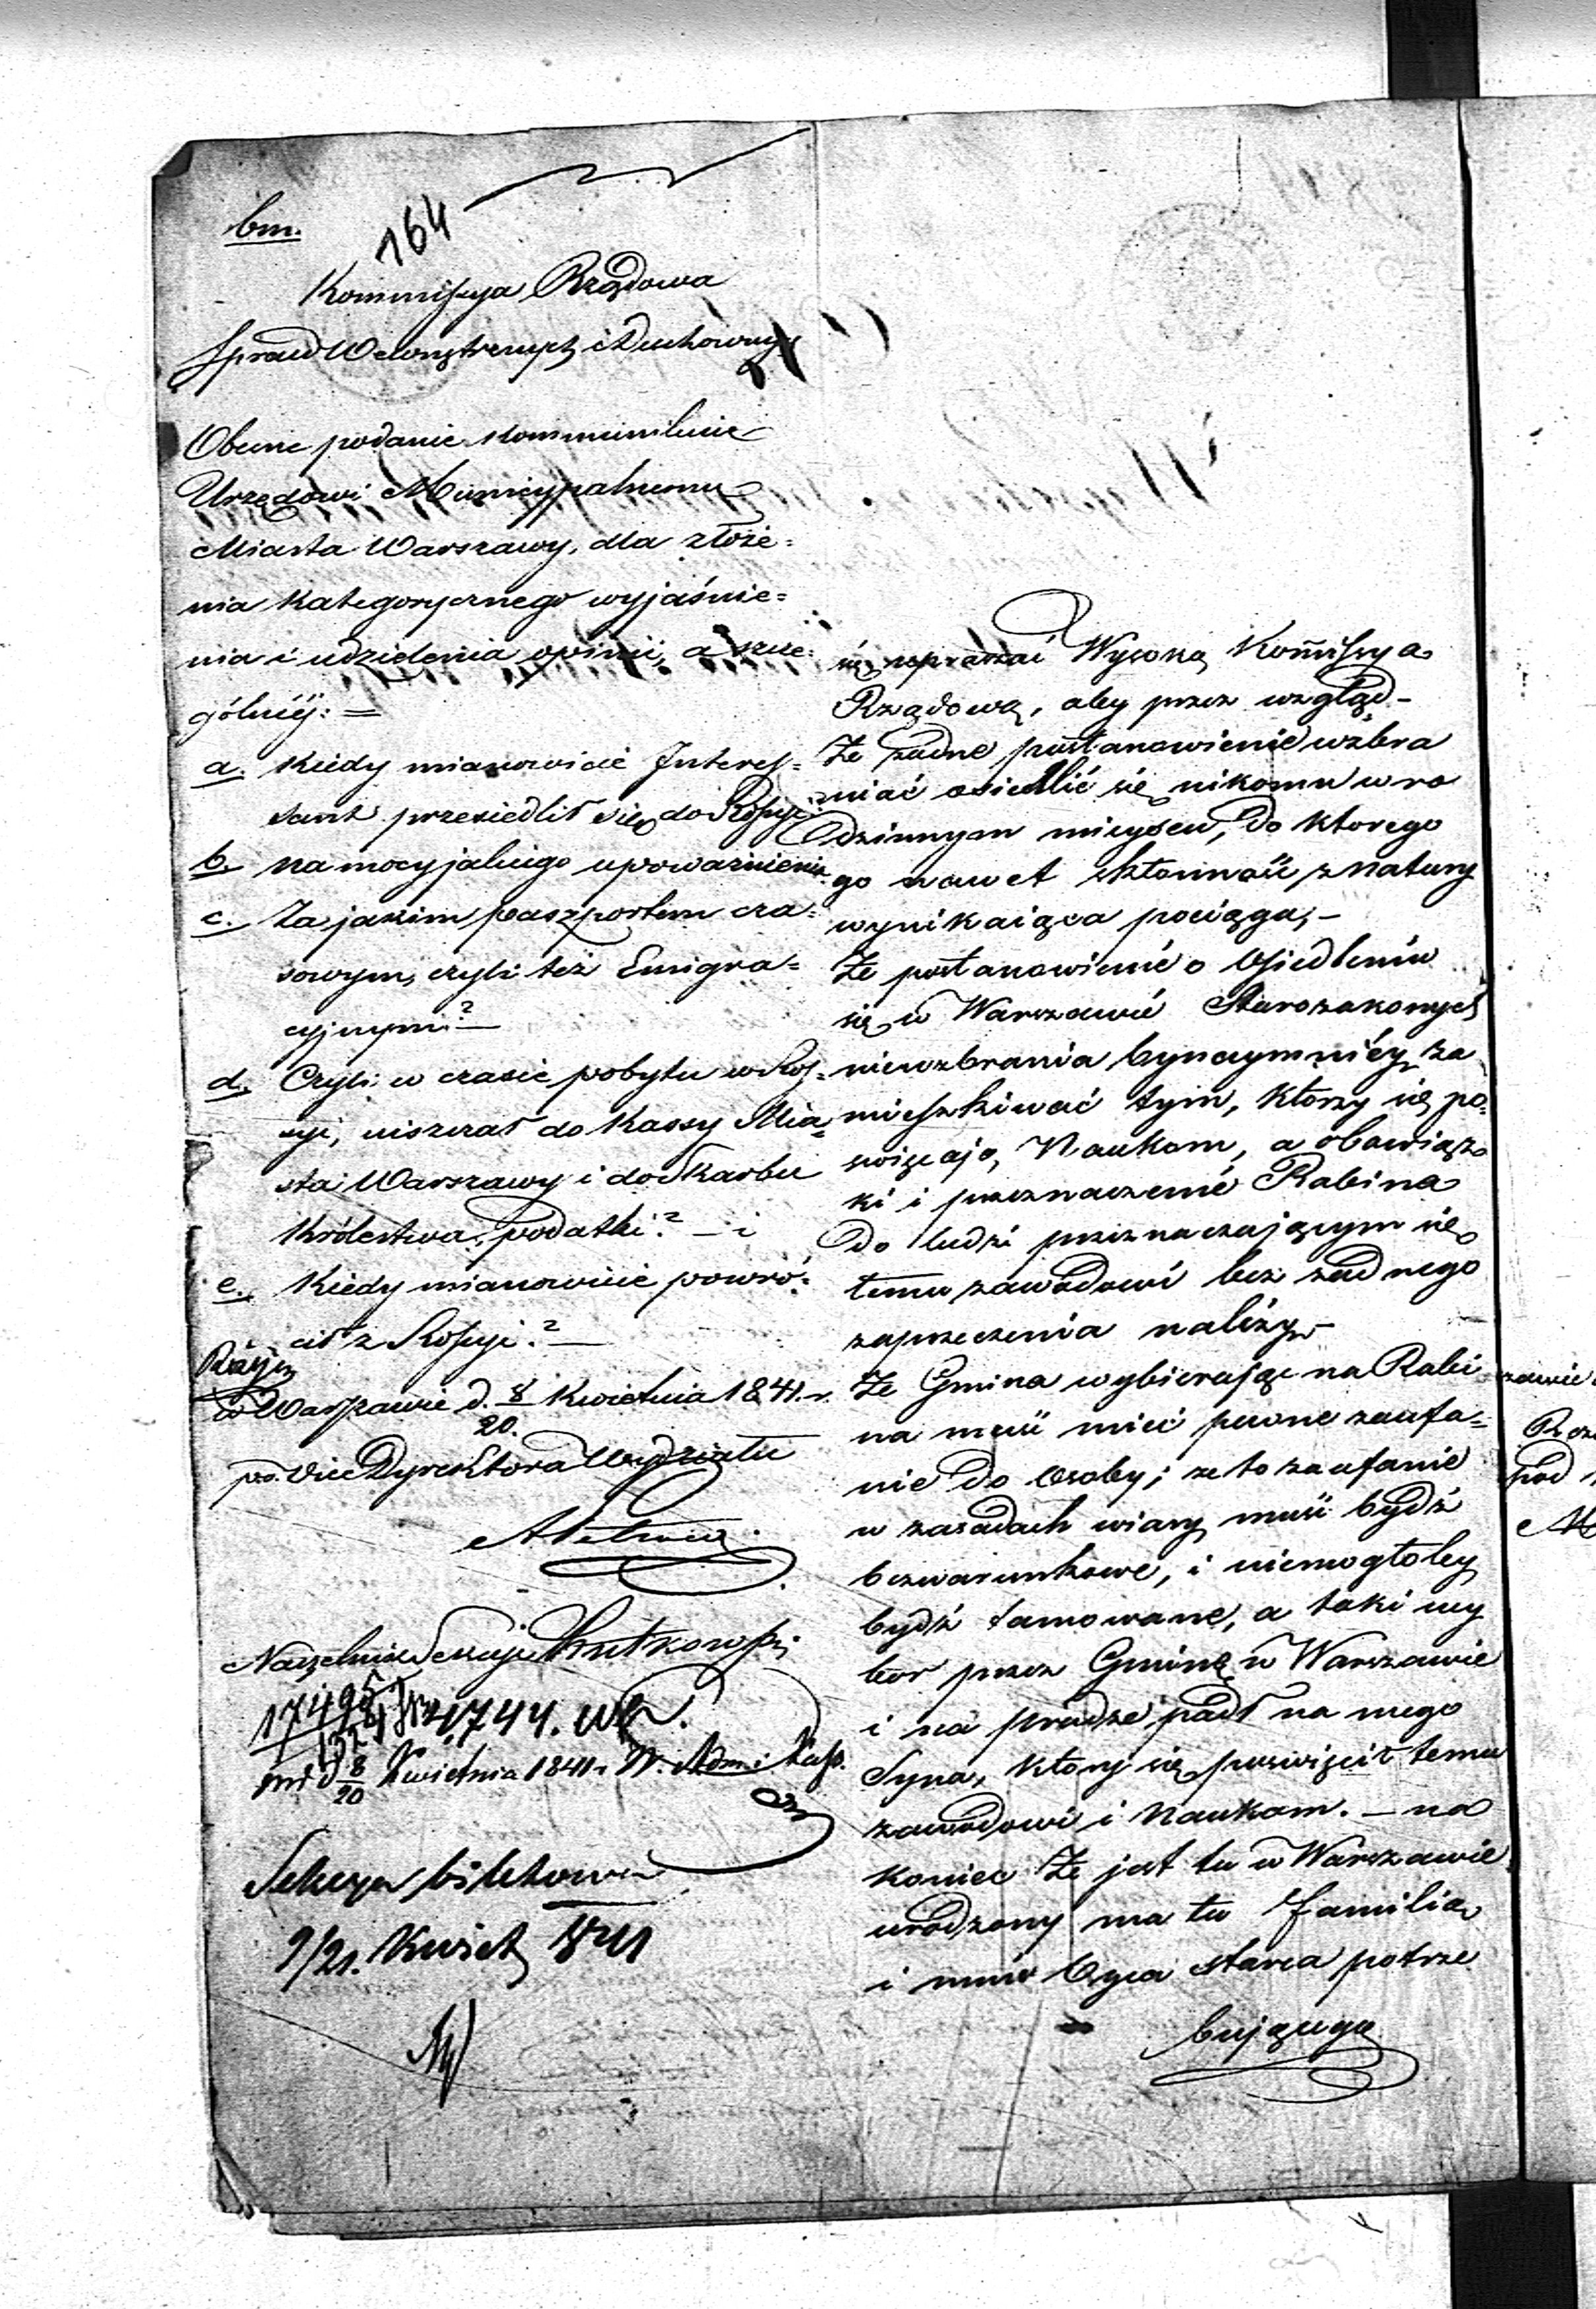 bm.
164
Kommissya Rządowa
Spraw Wewnętrznych i Duchownych
Obecne podanie kommunikuie
Urzędowi Municypalnemu
Miasta Warszawy, dla złoże=
nia kategorycznego wyjaśnie=
nia i udzielenia opinii, a szcze=
gólniéj: =
a. Kiedy mianowicie Interes=
sant przesiedlił się do Rossyi?
b. na mocy jakiego upoważnienia
c. Za jakim paszportem cza=
sowym, czyli też Emigra=
cyjnym? —
d. Czyli w czasie pobytu w Ros=
syi, uiszczał do Kassy Mia=
sta Warszawy i do Skarbu
Królestwa podatki? — i
e. Kiedy mianowicie powró=
cił z Rossyi? —
w Warszawie d. 8/20. Kwietnia 1841. r.
po. Vice Dyrektora Wydziału
Naczelnik Sekcyi
17495
d 8/20 Kwietnia 1841 r. W. Adm:
Sekcya biletowa
9/21. Kwiet 1841
się upraszać Wysoką Kom̄issya
Rządową, aby przez wzgląd —
Że żadne postanowienie wzbra
niać osiedlić się nikomu w ro
dzinnym mieyscu, do ktorego
go nawet skłonność z natury
wynikaiąca pociąga, —
Że postanowienie o Osiedleniu
się w Warszawie Starozakonych
niewzbrania bynaymniéy za
mieszkiwać tym, ktorzy się po=
swięcają Naukom, a obowiąz
ki i przeznaczenie Rabina
do ludzi przeznaczającym się
temu zawodowi bez żadnego
zaprzeczenia należy —
Że Gmina wybierając na Rabi
na musi mieć pewne zaufa=
nie do Osoby; że to zaufanie
w zasadach wiary musi bydź
bezwarunkowe, i niemogłoby
bydź tamowane, a taki wy
bor przez Gminę w Warszawie
i na Pradze padł na mego
Syna, ktory się poswięcił temu
zawodowi i Naukom. — na
koniec Że jest tu w Warszawie
urodzony ma tu familią
i mnie Oyca starca potrze
bującego